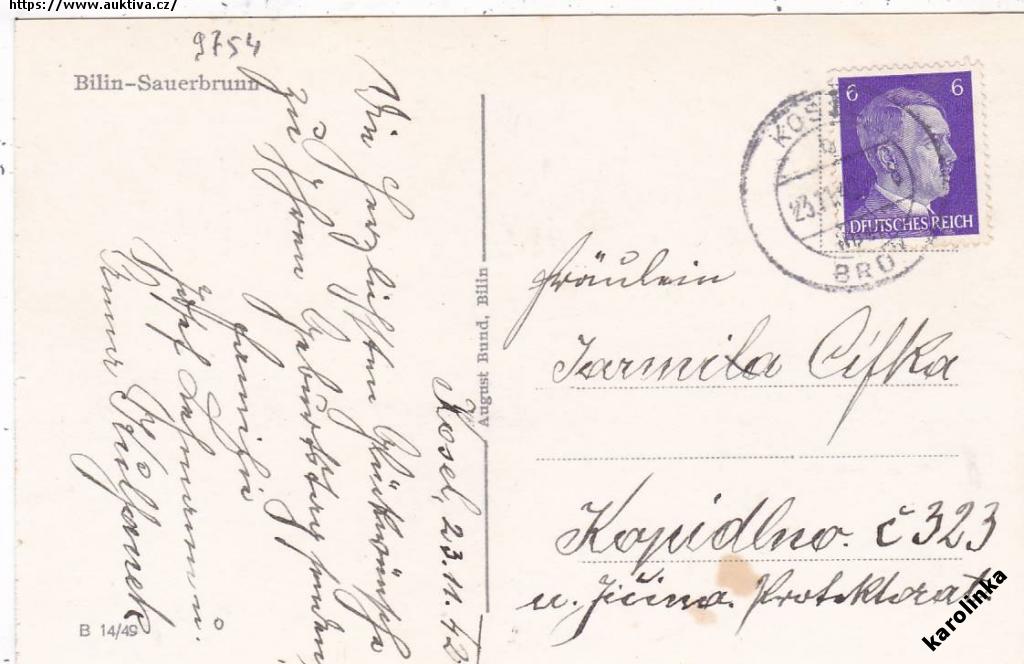 https://www.auktiva.cz/
9754
Bilin-Sauerbrunn
Die herzlichsten Glückwünsche
zu Ihrem Geburtstag senden
Familie
Kosel, 23.11.42
August Bund, Bilin
B 14/49
KOS
BRÜ
6 6
DEUTSCHES REICH
Fräulein
Jarmila Cífka
Kopidlno. č 323
u. Jičína. Protektorat
karolinka